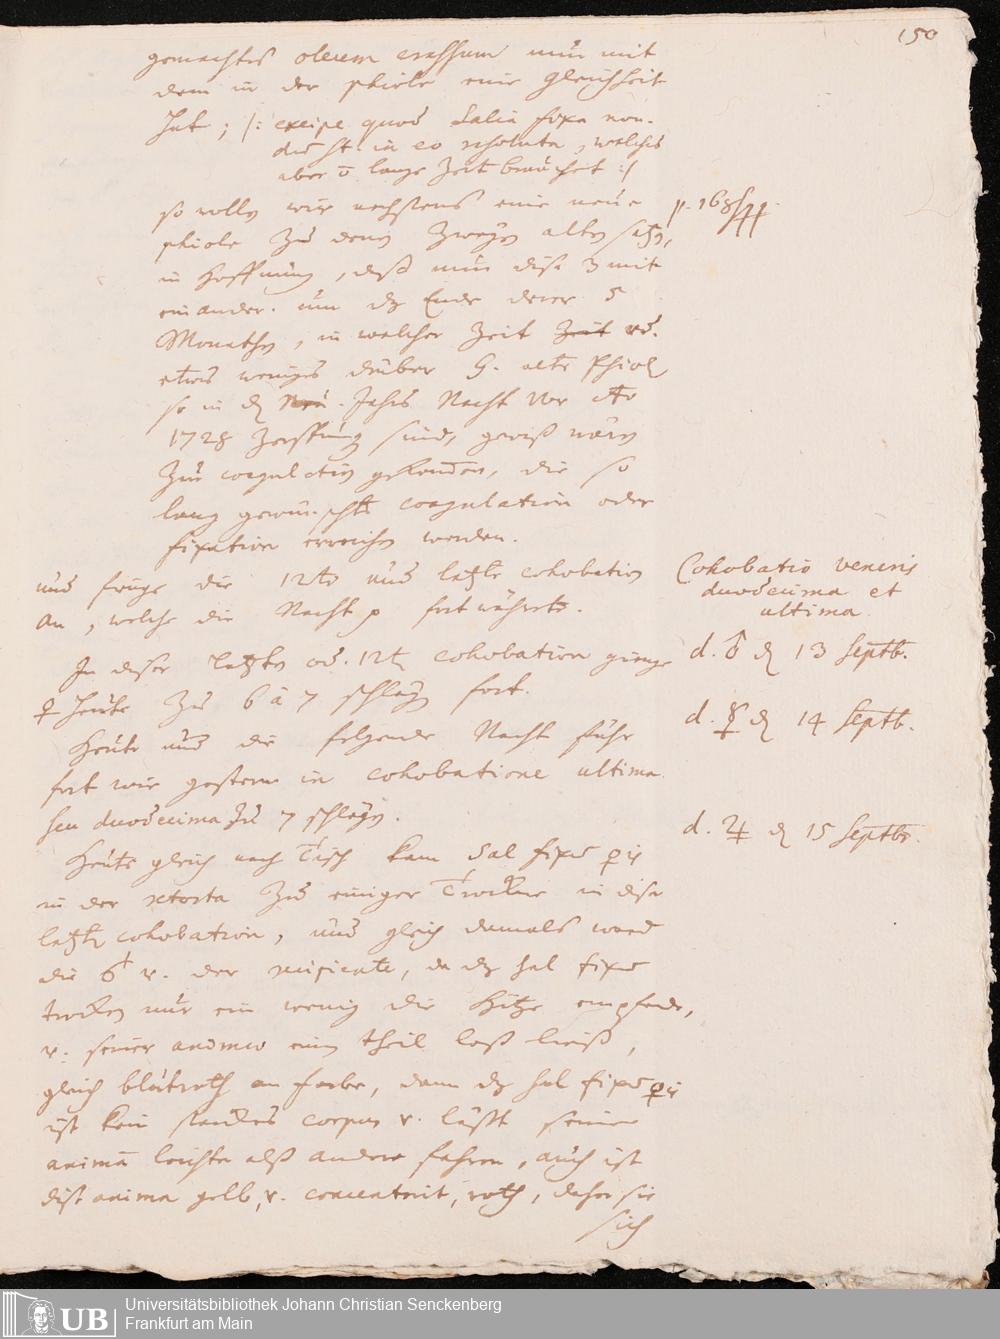 150
gemachtes oleum crassum nun mit
dem in der phiole eine Gleichheit
hat; /: excipe quod Salia fixa non-
dum st. in eo resoluta, welches
aber lange Zeit brauchet :/
so wollen wir nechstens eine neue
phiole zu denen zweyen alten setzen,
p. 168
in Hoffnung, daß nun diese 3 mit
einander um das Ende derer 5
Monathen, in welcher Zeit Zeit
etwas weniges drüber alte Phiolen
so in der Neu-Jahrs Nacht vor
1728 zersprungen sind, gewiß waren
zur coagulation gestanden, die so
lang gewünschte coagulation oder
fixation erreichen werden.
und fienge die 12te und letzte cohobation
an, welche die Nacht fort währete.
Cohobatio veneris
duodecima et
ultima
In dieser letzten od. 12ten cohobation gienge
d. ♂ den 13 Septb.
☿ Heute zu 6 à 7 schlägen fort.
d. ☿ den 14 Septb.
Heute und die folgende Nacht fuhr
fort wie gestern in cohobatione ultima
seu duodecima zu 7 schlägen.
d. ♃ den 15 Septbr.
Heute gleich nach Tisch kam Sal fixum ♀is
in der retorta zu einiger Trockne in dieser
letzten cohobation, und gleich damals ward
die der rusicate, da das sal fixum
trocken nur ein wenig die Hitze empfande,
v. seiner einen theil loß ließ,
gleich blutroth an farbe, dann das sal fixum ♀is
ist kein corpus v. läßt seine
animam leichter alß andere fahren, auch ist
diese anima gelb, v. concentrirt, roth, daher sie
sich
Universitätsbibliothek Johann Christian Senckenberg
Frankfurt am Main
UB